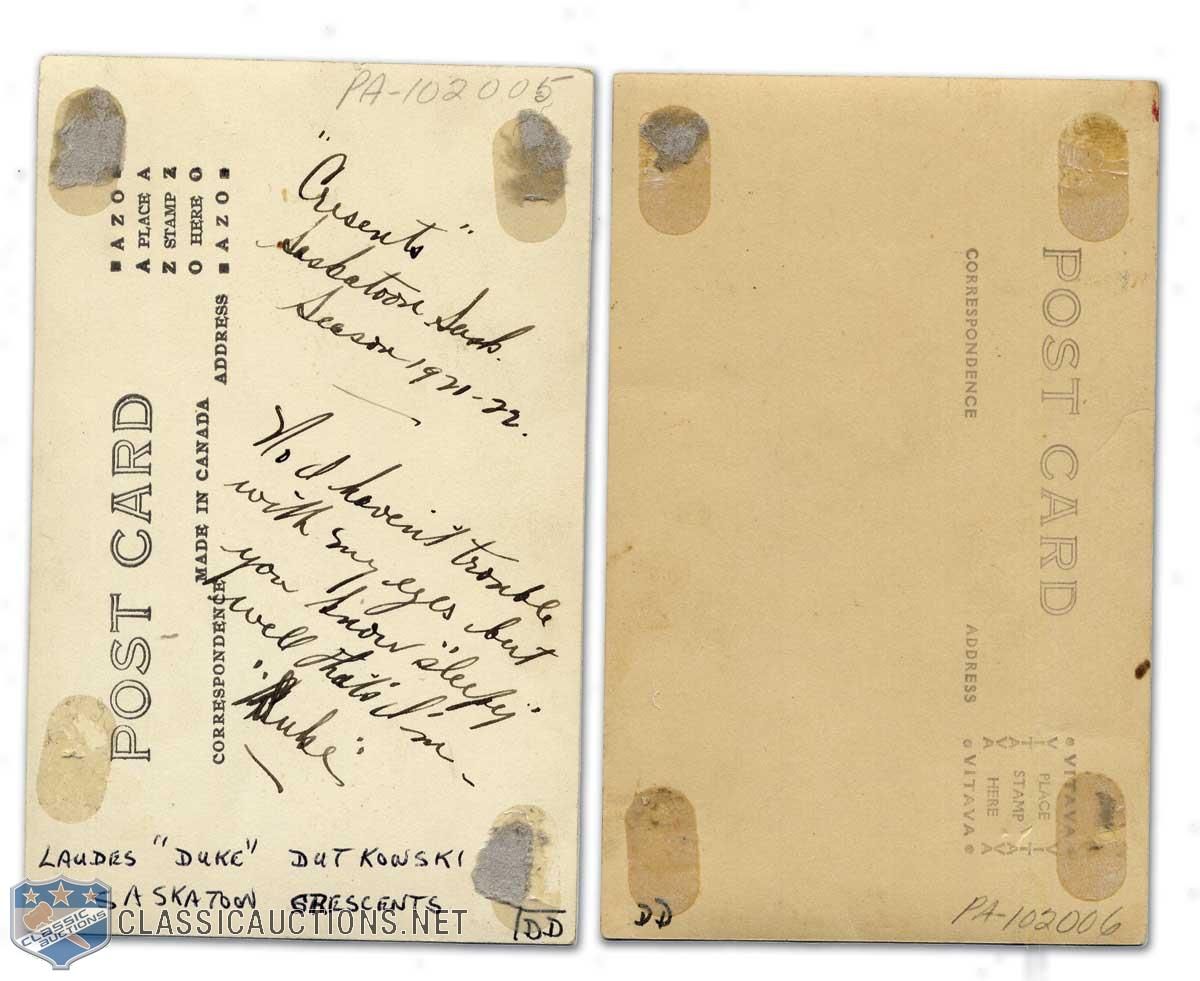 PA-102005
"Cresents"
Saskatoon Sask.
Season 1921-22.
No I haven't trouble
with my eyes, but
you know "sleepy"
well that's I'm -
"Duke"
AZO
A PLACE A
Z STAMP Z
O HERE O
AZO
POST CARD
MADE IN CANADA
CORRESPONDENCE
ADDRESS
LAUDES "DUKE" DUTKOWSKI
SASKATOON CRESCENTS
DD
CLASSIC
AUCTIONS
CLASSICAUCTIONS.NET
POST CARD
CORRESPONDENCE
ADDRESS
VITAVA
PLACE
STAMP
HERE
VITAVA
DD
PA-102006